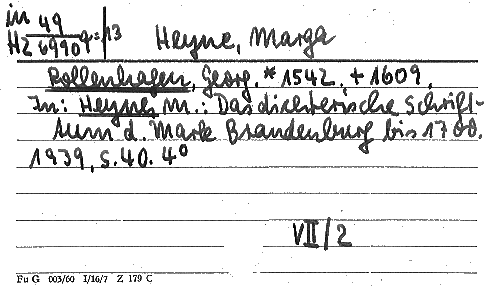 in 49
HZ 6990 q = / 13
Heyne, Marga
Rollenhagen, Georg. * 1542, + 1609.
In: Heyne, M.: Das dichterische Schrift-
tum d. Mark Brandenburg bis 1700.
1939, S. 40. 4°
VII/2
Fu G 003/60 I/16/7 Z 179 C